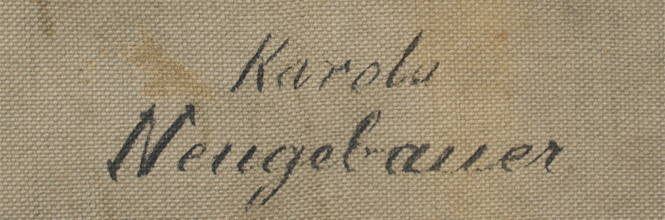 Karola
Neugebauer